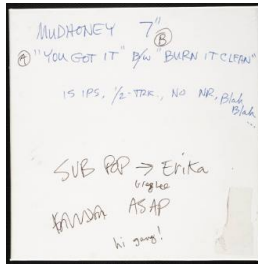 MUDHONEY 7"
Ⓐ "YOU GOT IT" B/W Ⓑ "BURN IT CLEAN"
15 IPS, 1/2-TRK., NO NR, Blah
Blah
...
SUB POP → Erika
ASAP
hi gang!